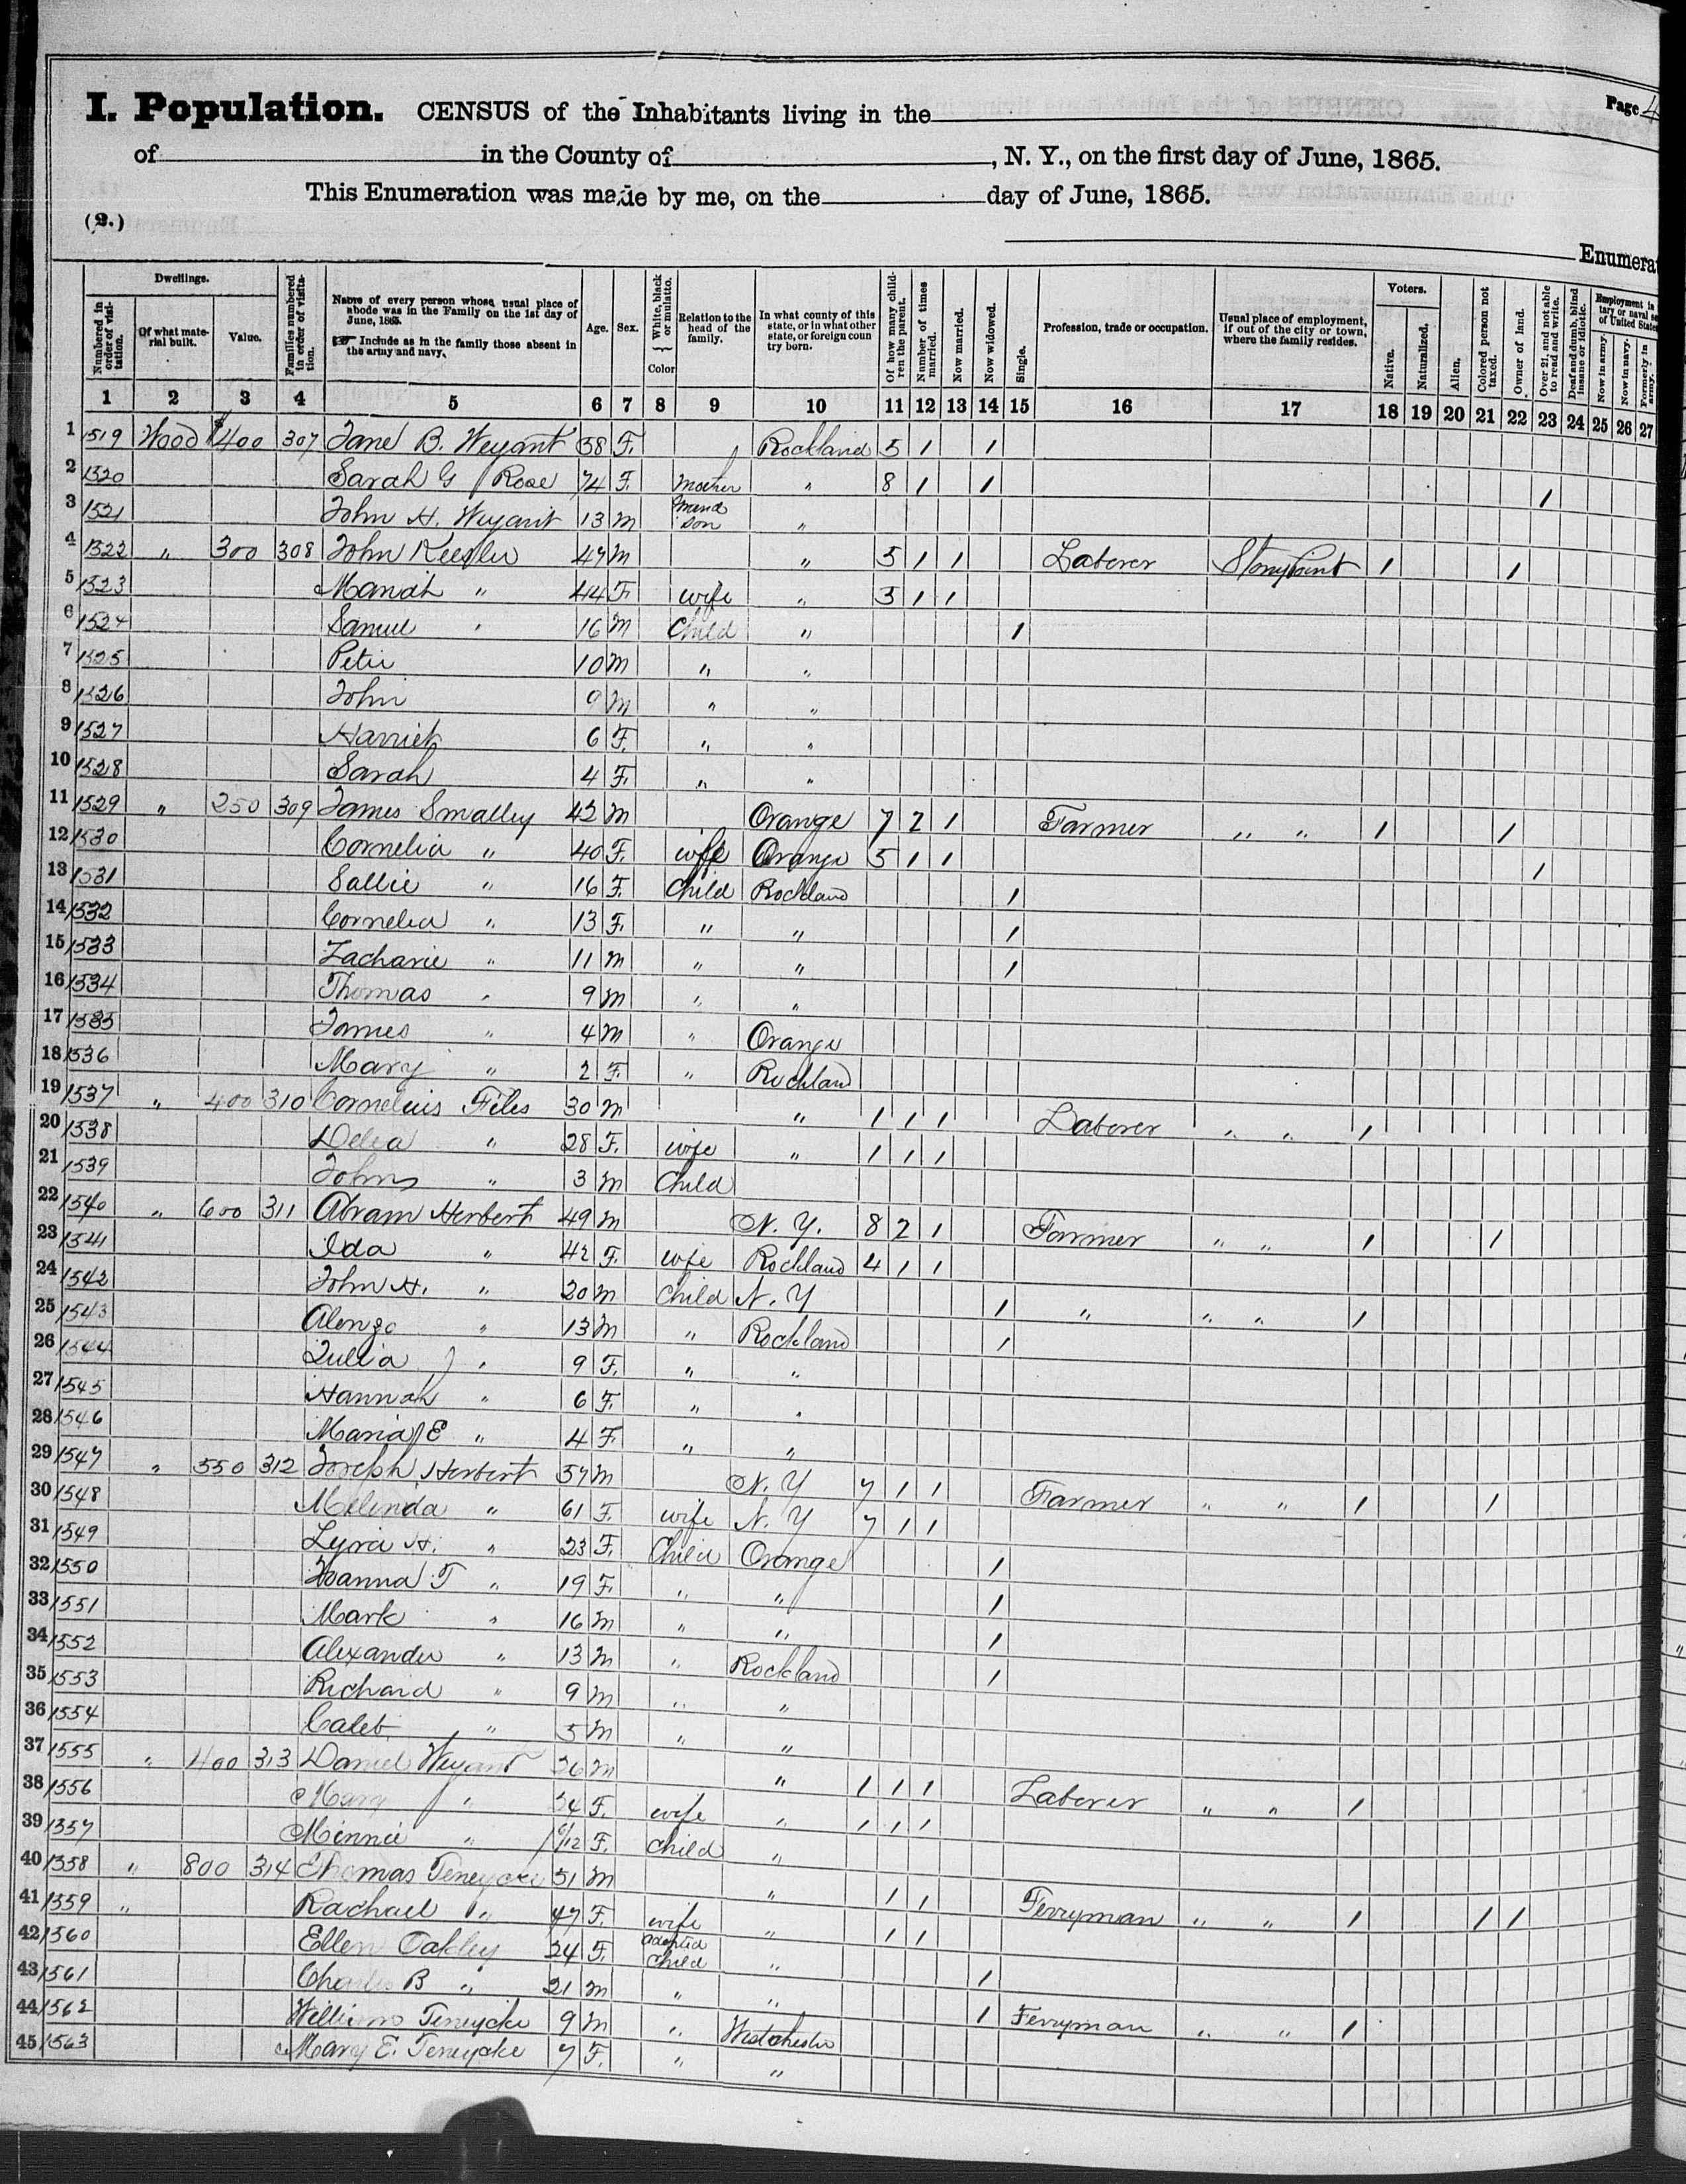 I. Population. CENSUS of the Inhabitants living in the
Page 4
of in the County of , N. Y., on the first day of June, 1865.
This Enumeration was made by me, on the day of June, 1865.
(2.)
Enumerat
Numbered in order of visitation.
Dwellings.
Of what material built.
Value.
Families numbered in order of visitation.
Name of every person whose usual place of abode was in the Family on the 1st day of June, 1865.
Include as in the family those absent in the army and navy.
Age.
Sex.
White, black or mulatto.
Color
Relation to the head of the family.
In what county of this state, or in what other state, or foreign country born.
Of how many children the parent.
Number of times married.
Now married.
Now widowed.
Single.
Profession, trade or occupation.
Usual place of employment, if out of the city or town, where the family resides.
Voters.
Native.
Naturalized.
Alien.
Colored person not taxed.
Owner of land.
Over 21, and not able to read and write.
Deaf and dumb, blind insane or idiotic.
Employment in tary or naval se of United State
Now in army.
Now in navy.
Formerly in army.
1 2 3 4 5 6 7 8 9 10 11 12 13 14 15 16 17 18 19 20 21 22 23 24 25 26 27
1 1519 Wood $400 307 Jane B. Weyant 38 F. Rockland 5 1 1
2 1520 Sarah G Rose 74 F. Mother " 8 1 1 1
3 1521 John H. Weyant 13 M Grand Son "
4 1522 " 300 308 John Keesler 47 M " 5 1 1 Laborer Stony Point 1 1
5 1523 Mariah " 44 F wife " 3 1 1
6 1524 Samuel " 16 M Child " 1
7 1525 Peter 10 M " "
8 1526 John 9 M " "
9 1527 Harriet 6 F. " "
10 1528 Sarah 4 F. " "
11 1529 " 250 309 James Smalley 42 M Orange 7 2 1 Farmer " " 1 1
12 1530 Cornelia " 40 F. wife Orange 5 1 1 1
13 1531 Sallie " 16 F. Child Rockland 1
14 1532 Cornelia " 13 F. " " 1
15 1533 Zacharie " 11 M " " 1
16 1534 Thomas " 9 M " "
17 1535 James " 4 M " Orange
18 1536 Mary " 2 F. " Rockland
19 1537 " 400 310 Cornelius Files 30 M " 1 1 1 Laborer " " 1
20 1538 Delia " 28 F. wife " 1 1 1
21 1539 John " 3 M Child
22 1540 " 600 311 Abram Herbert 49 M N. Y. 8 2 1 Farmer " " 1 1
23 1541 Ida " 42 F. wife Rockland 4 1 1
24 1542 John H. " 20 M Child N. Y 1 " " " 1
25 1543 Alonzo " 13 M " Rockland 1
26 1544 Julia " 9 F. " "
27 1545 Hannah " 6 F. " "
28 1546 Maria E " 4 F " "
29 1547 " 550 312 Joseph Herbert 57 M N. Y 7 1 1 Farmer " " 1 1
30 1548 Melinda " 61 F. wife N. Y 7 1 1
31 1549 Lyra H. " 23 F. Child Orange 1
32 1550 Joanna T " 19 F. " " 1
33 1551 Mark " 16 M " " 1
34 1552 Alexander " 13 M " Rockland 1
35 1553 Richard " 9 M " "
36 1554 Caleb " 5 M " "
37 1555 " 400 313 Daniel Weyant 26 M " 1 1 1 Laborer " " 1
38 1556 Mary " 24 F. wife " 1 1 1
39 1557 Minnie " /12 F. Child "
40 1558 " 800 314 Thomas Teneycke 51 M " 1 1 Ferryman " " 1 1 1
41 1559 " Rachael " 47 F. wife " 1 1
42 1560 Ellen Oakley 24 F. adopted Child " 1
43 1561 Charles B " 21 M " " 1 Ferryman " " 1
44 1562 William Teneycke 9 M " Westchester
45 1563 Mary E. Teneycke 7 F. " "